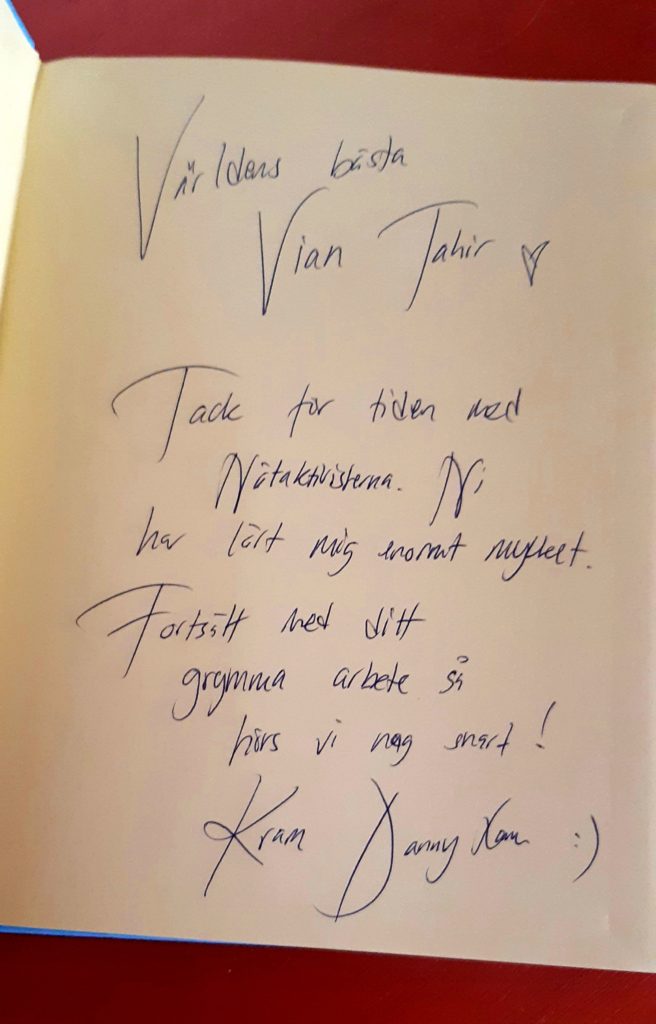 Världens bästa
Vian Tahir
Tack för tiden med
Nätaktivisterna. Ni
har lärt mig enormt mycket.
Fortsätt med ditt
grymma arbete så
hörs vi nog snart!
Kram Danny :)